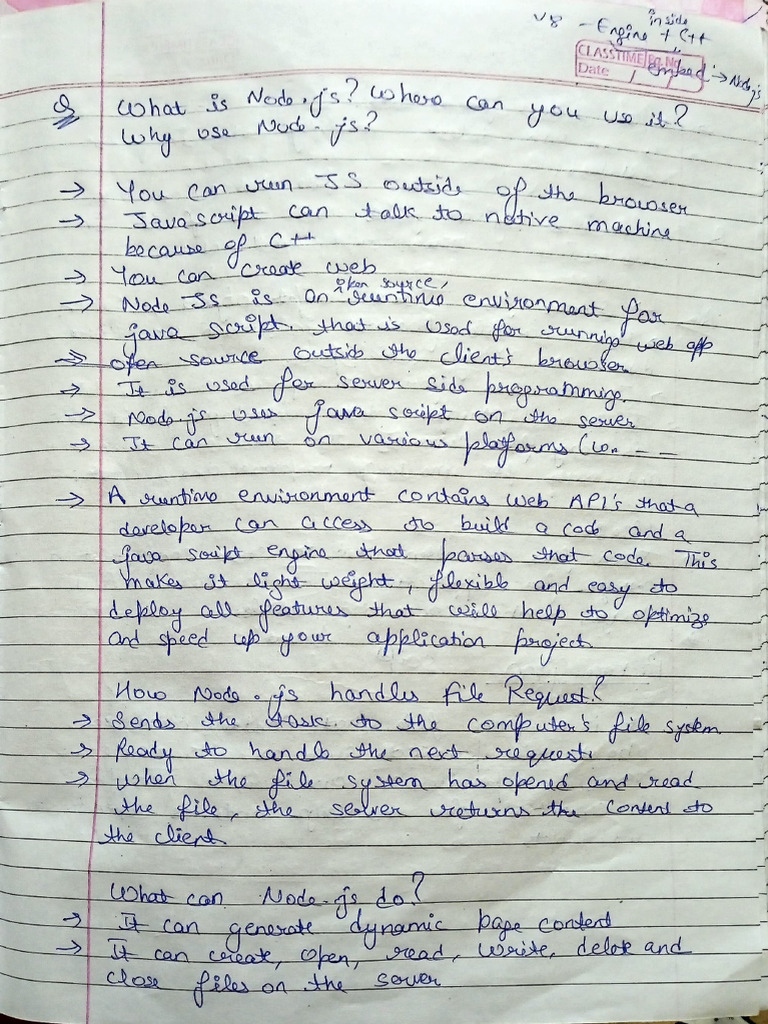 inside
V8 - Engine + C++
CLASSTIME Pg. No.
Date / /
embead → Node js
Q What is Node.js? Where can you use it?
Why use Node.js?
→ You can run JS outside of the browser
→ Javascript can talk to native machine
because of C++
→ You can create web
open source,
→ Node JS is an runtime environment for
java script. that is used for running web app
→ open source outside the client's browser
→ It is used for server side programming.
→ Node.js uses java script on the server
→ It can run on various platforms (w. - -
→ A runtime environment contains web API's that a
developer can access to build a code and a
java script engine that parses that code. This
makes it light weight, flexible and easy to
deploy all features that will help to optimize
and speed up your application project.
How Node.js handles file Request?
→ Sends the task to the computer's file system.
→ Ready to handle the next request.
→ When the file system has opened and read
the file, the server returns the content to
the client.
What can Node.js do?
→ It can generate dynamic page content
→ It can create, open, read, write, delete and
close files on the server